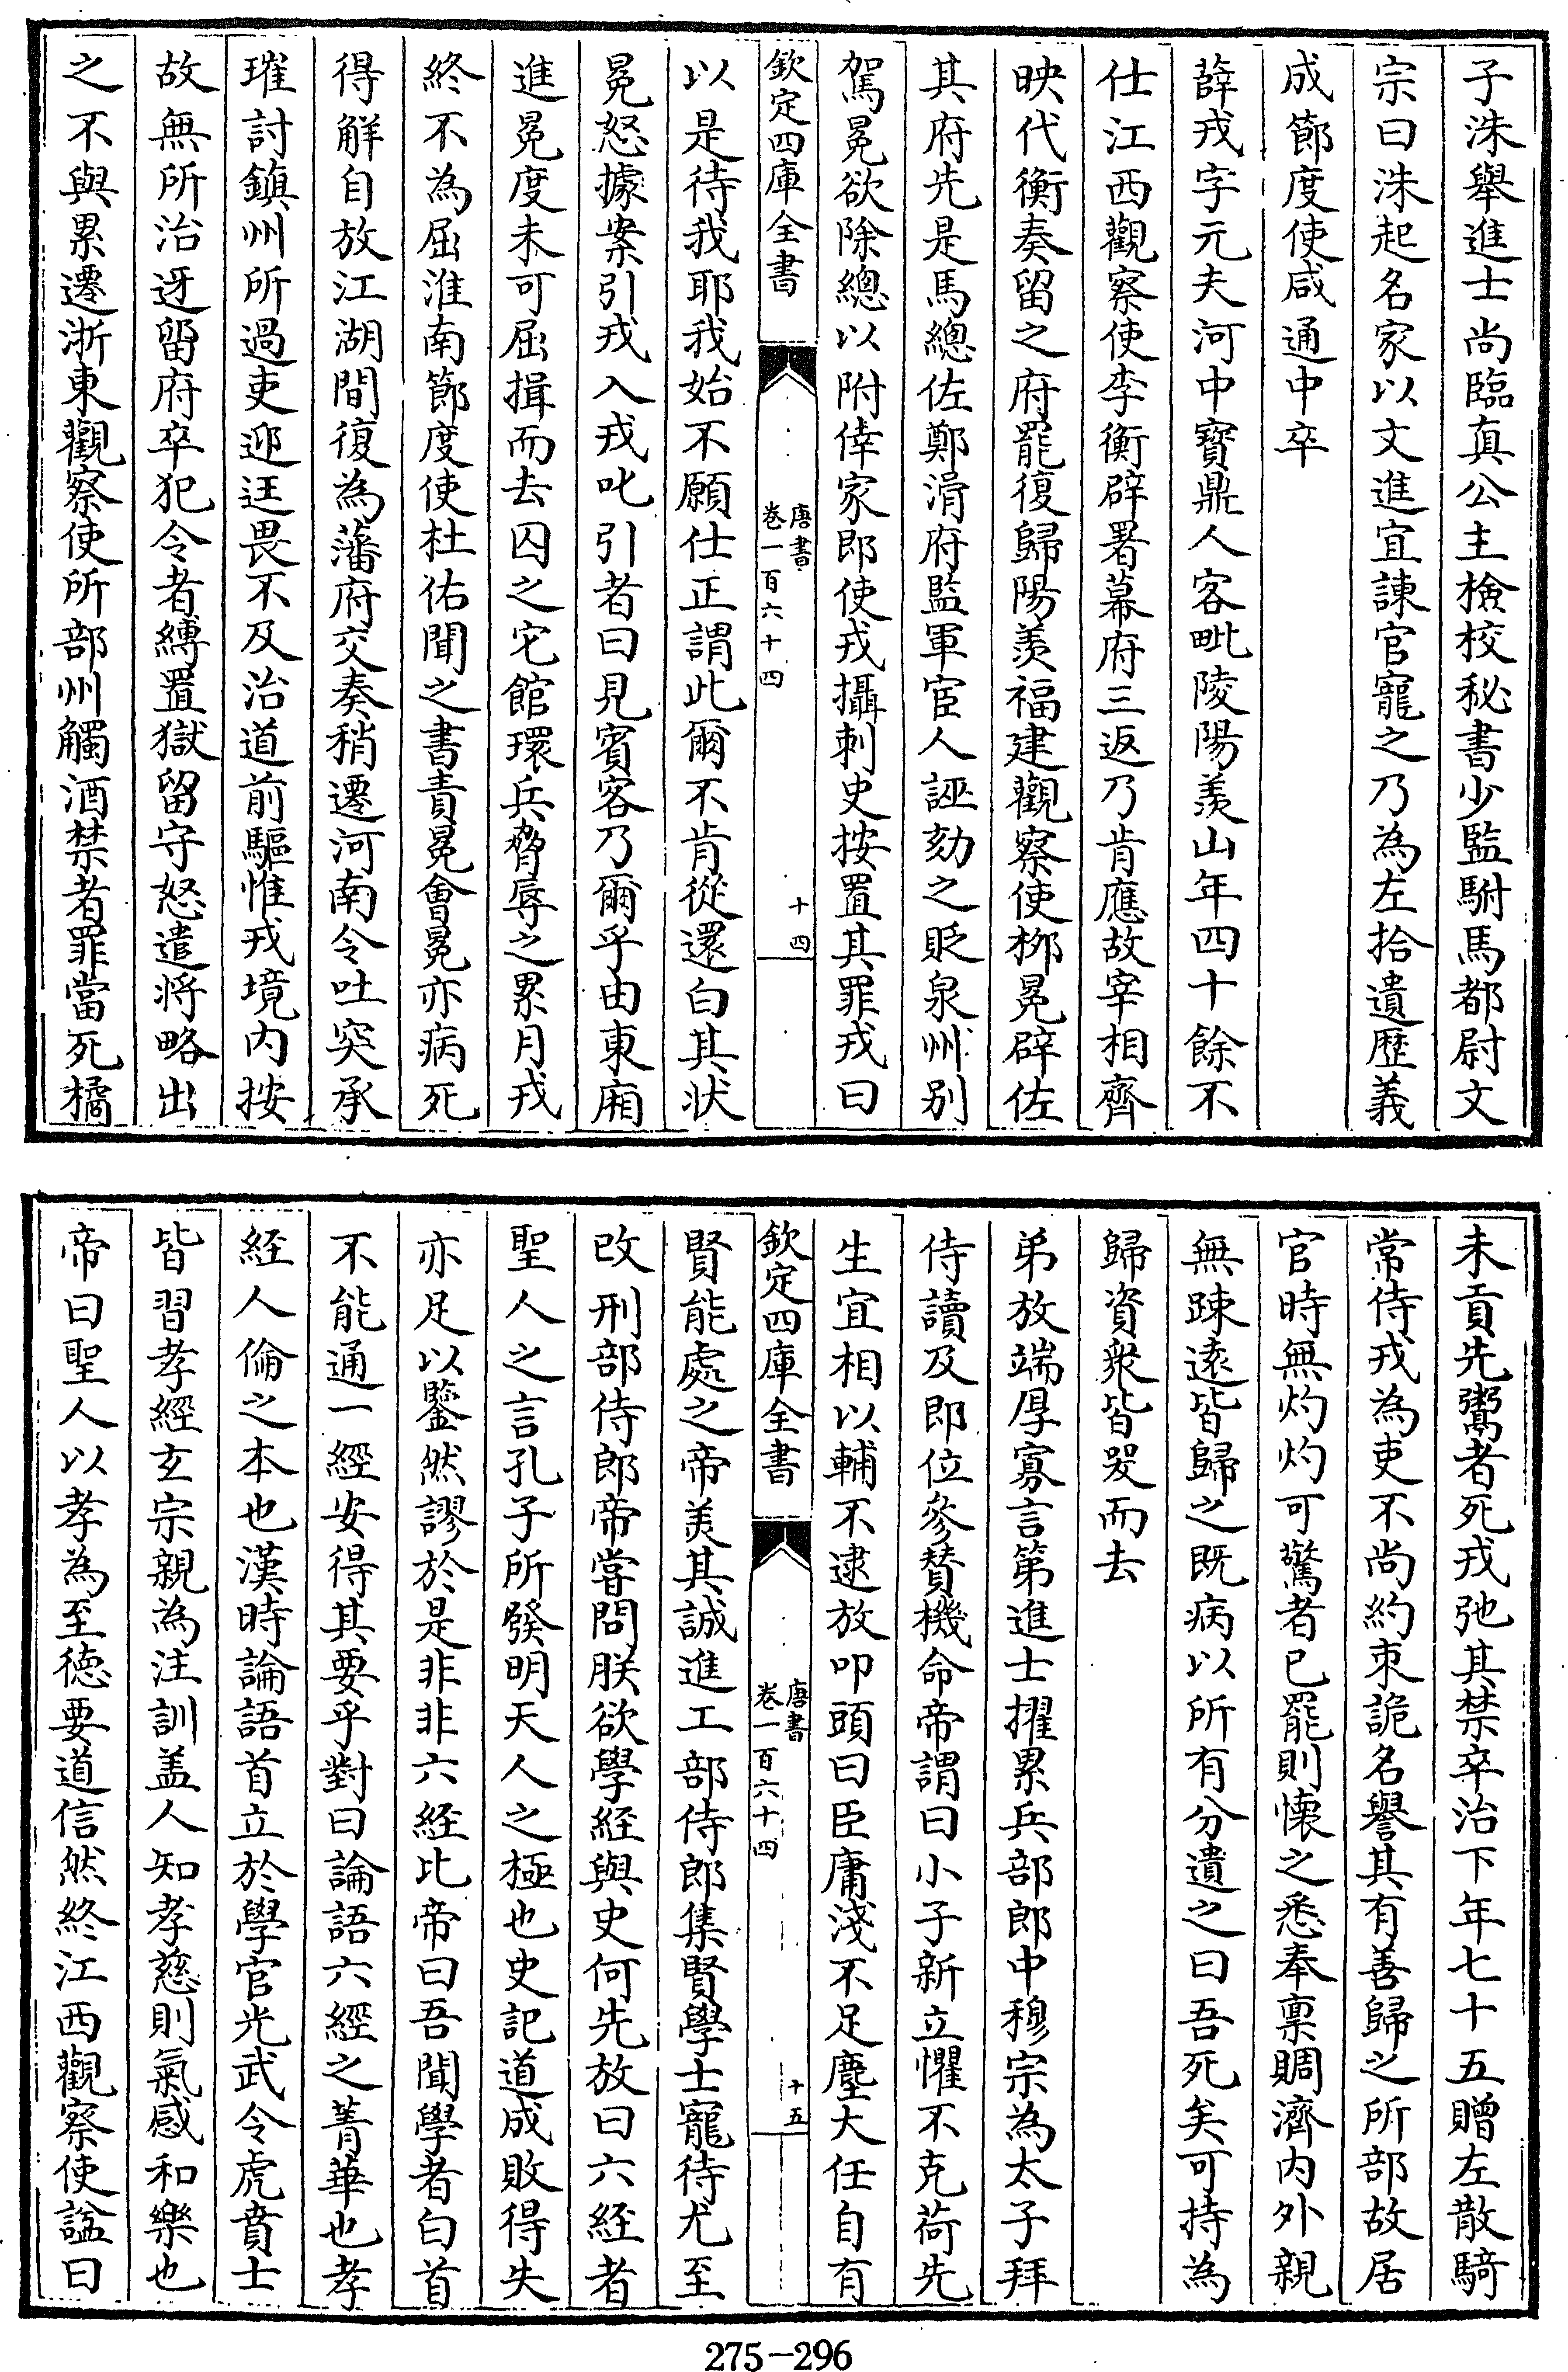 子洙舉進士尚臨真公主檢校秘書少監駙馬都尉文
宗曰洙起名家以文進宜諫官寵之乃為左拾遺歷義
成節度使咸通中卒
薛戎字元夫河中寶鼎人客毗陵陽羨山年四十餘不
仕江西觀察使李衡辟署幕府三返乃肯應故宰相齊
映代衡奏留之府罷復歸陽羨福建觀察使栁冕辟佐
其府先是馬總佐鄭滑府監軍宦人誣劾之貶泉州别
駕冕欲除總以附倖家即使戎攝刺史按置其罪戎曰
欽定四庫全書
唐書
卷一百六十四
十四
以是待我耶我始不願仕正謂此爾不肯從還白其狀
冕怒據案引戎入戎叱引者曰見賓客乃爾乎由東廂
進冕度未可屈揖而去囚之它館環兵脅辱之累月戎
終不為屈淮南節度使杜佑聞之書責冕會冕亦病死
得解自放江湖間復為藩府交奏稍遷河南令吐突承
璀討鎮州所過吏迎迋畏不及治道前驅惟戎境内按
故無所治迓留府卒犯令者縛置獄留守怒遣将略出
之不與累遷浙東觀察使所部州觸酒禁者罪當死橘
未貢先鬻者死戎弛其禁卒治下年七十五贈左散騎
常侍戎為吏不尚約束詭名譽其有善歸之所部故居
官時無灼灼可驚者已罷則懷之悉奉稟賙濟内外親
無踈遠皆歸之既病以所有分遺之曰吾死矣可持為
歸資衆皆哭而去
弟放端厚寡言第進士擢累兵部郎中穆宗為太子拜
侍讀及即位參賛機命帝謂曰小子新立懼不克荷先
生宜相以輔不逮放叩頭曰臣庸淺不足塵大任自有
欽定四庫全書
唐書
卷一百六十四
十五
賢能處之帝美其誠進工部侍郎集賢學士寵待尤至
改刑部侍郎帝嘗問朕欲學經與史何先放曰六経者
聖人之言孔子所發明天人之極也史記道成敗得失
亦足以鑒然謬於是非非六経比帝曰吾聞學者白首
不能通一經安得其要乎對曰論語六經之菁華也孝
経人倫之本也漢時論語首立於學官光武令虎賁士
皆習孝經玄宗親為注訓盖人知孝慈則氣感和樂也
帝曰聖人以孝為至徳要道信然終江西觀察使諡曰
275-296